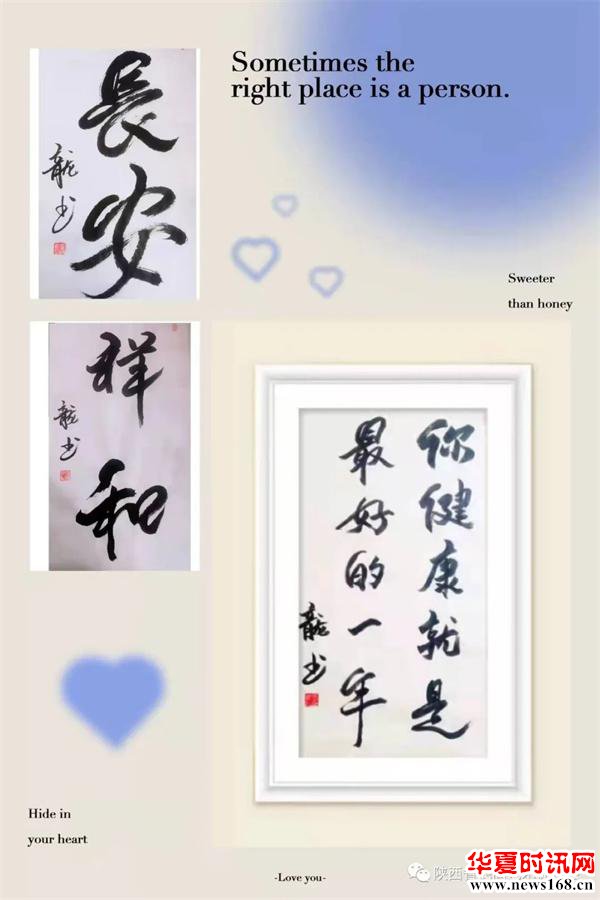 Sometimes the
right place is a person.
長安
龍书
Sweeter
than honey
祥和
龍书
你健康就是
最好的一年
龍书
Hide in
your heart
-Love you-
陕西
华夏时讯网
www.news168.cn